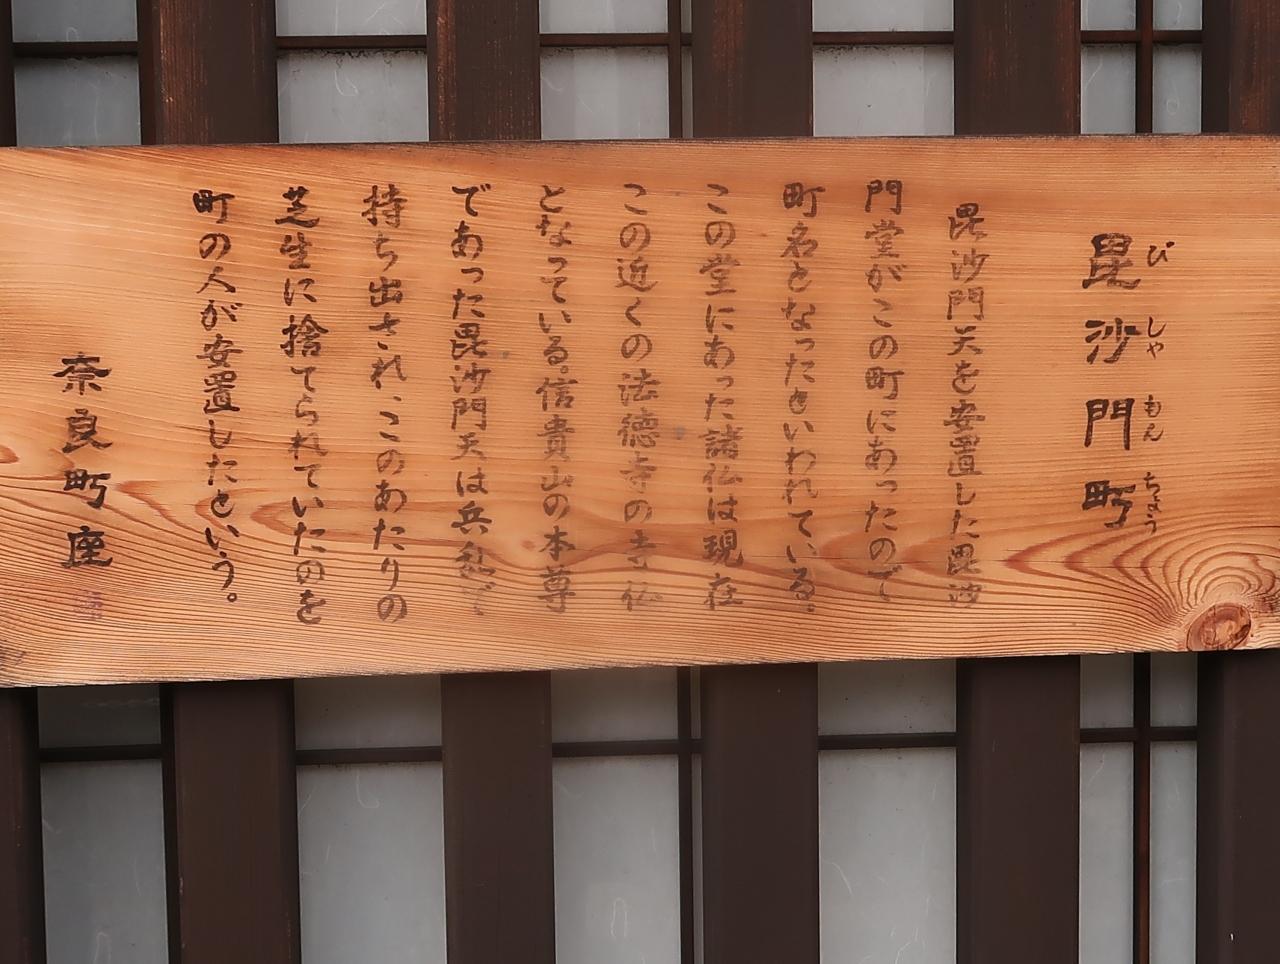 毘沙門町
びしゃもんちょう
毘沙門天を安置した毘沙
門堂がこの町にあったので
町名となったといわれている。
この堂にあった諸仏は現在
この近くの法徳寺の寺仏
となっている。信貴山の本尊
であった毘沙門天は兵乱で
持ち出され、このあたりの
芝生に捨てられていたのを
町の人が安置したという。
奈良町座